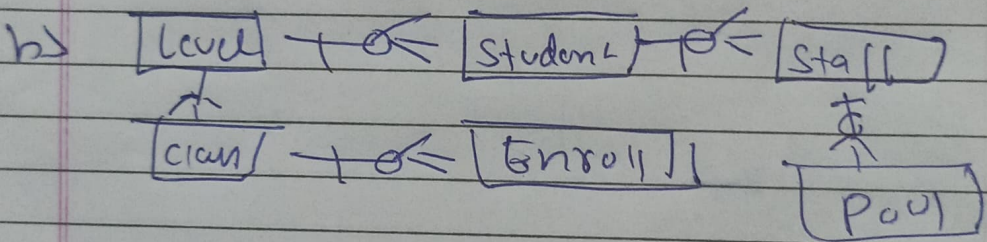 b) Level Student Staff
Class Enroll
Pool